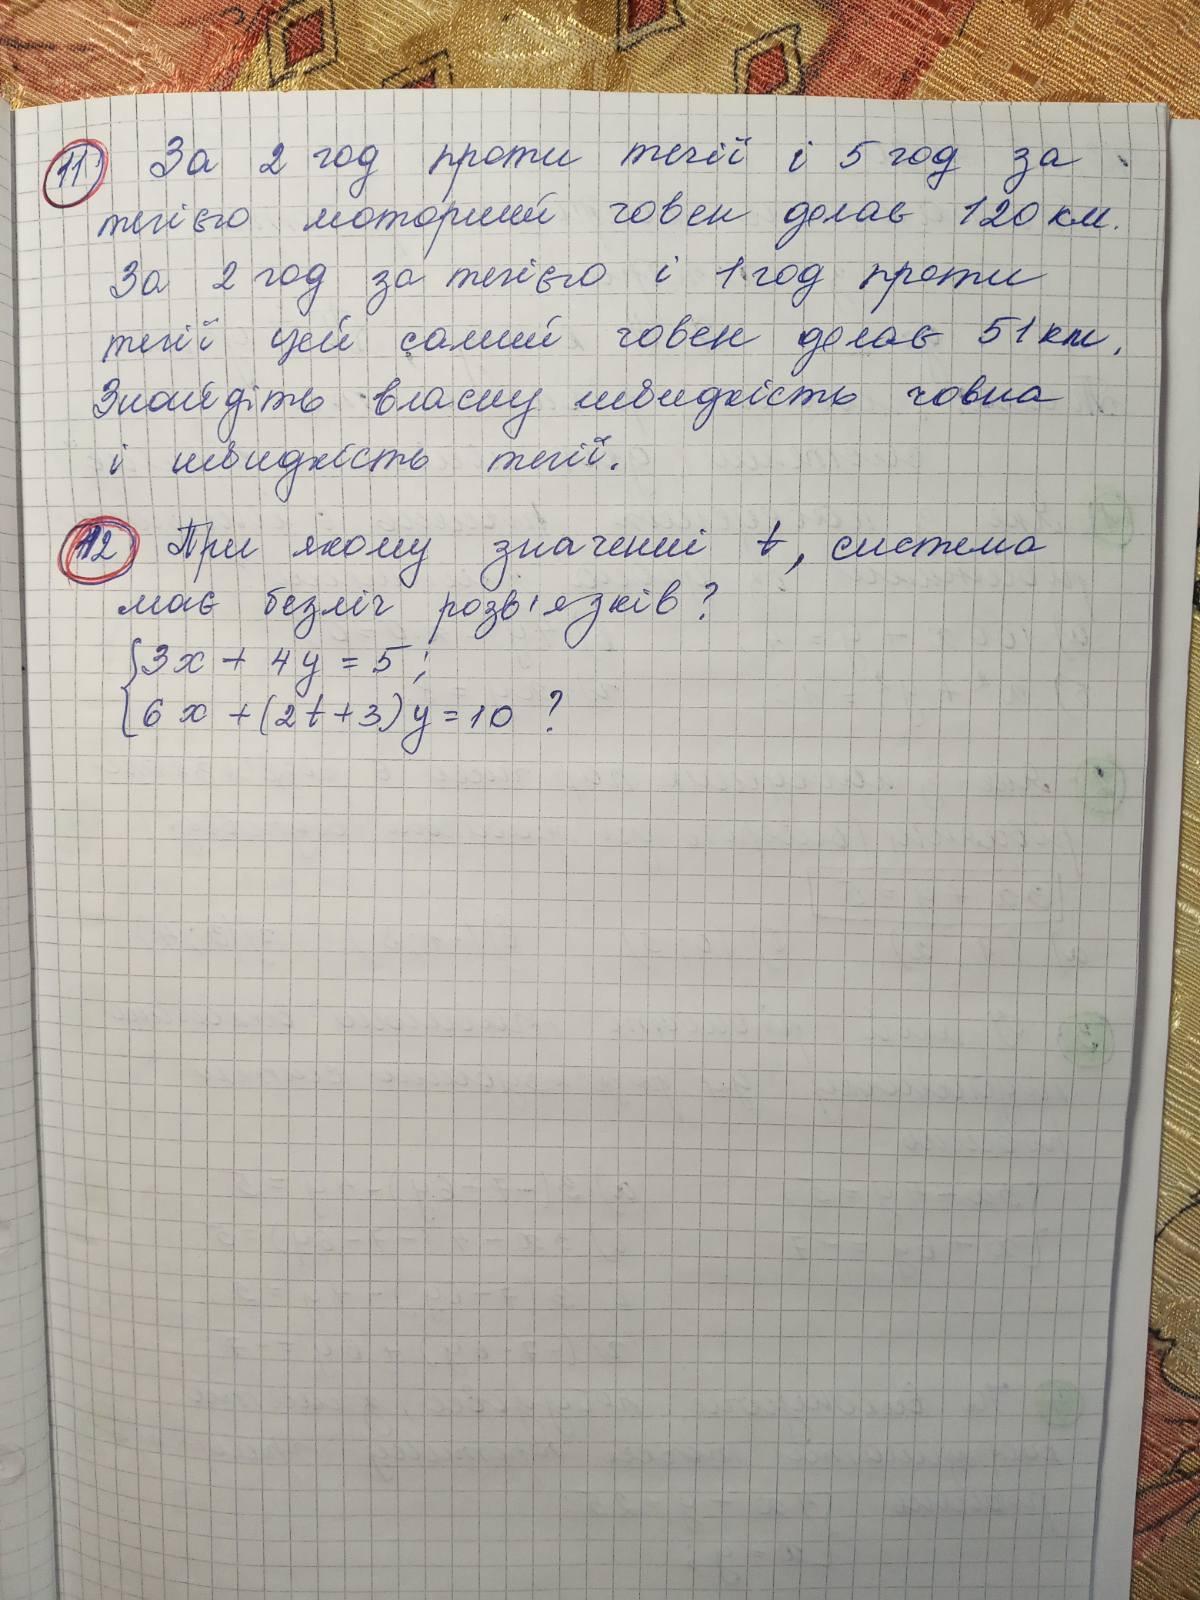 11 За 2 год проти течії і 5 год за
течією моторний човен долає 120 км.
За 2 год за течією і 1 год проти
течії цей самий човен долає 51 км.
Знайдіть власну швидкість човна
і швидкість течії.
12 При якому значенні t, система
має безліч розв'язків?
3x + 4y = 5;
6x + (2t + 3)y = 10 ?